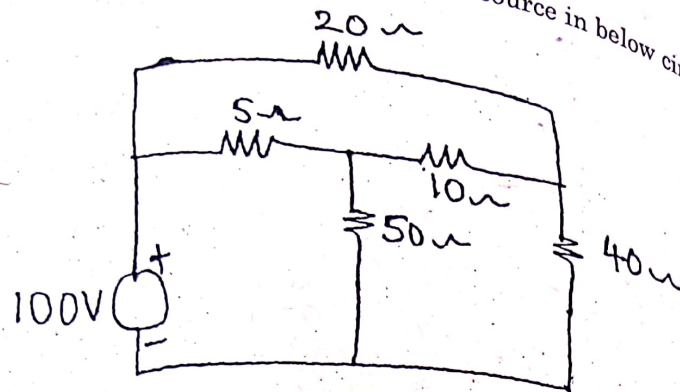 source in below
20 Ω
5 Ω
10 Ω
50 Ω
40 Ω
100V
+
-